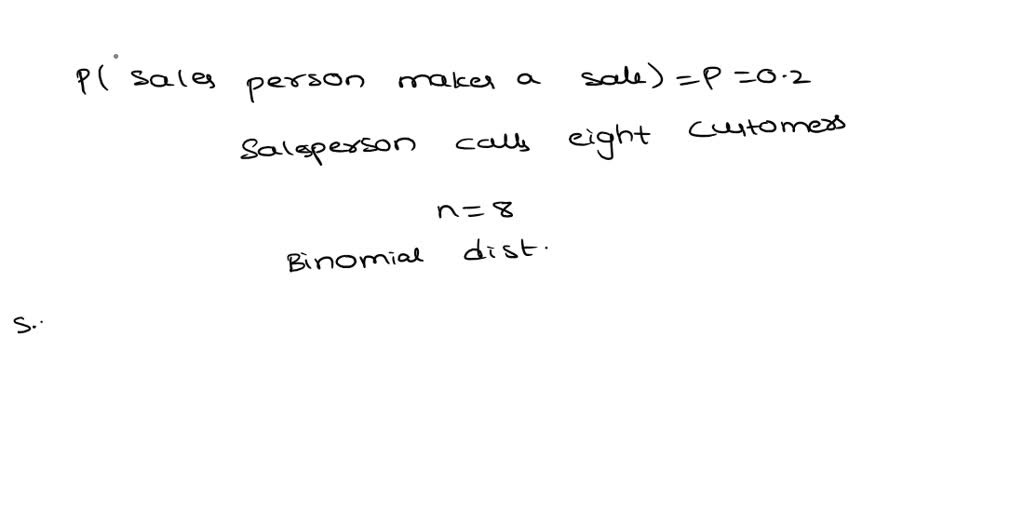 P( sales person makes a sale) = P = 0.2
Salesperson calls eight customers
n = 8
Binomial dist.
S..